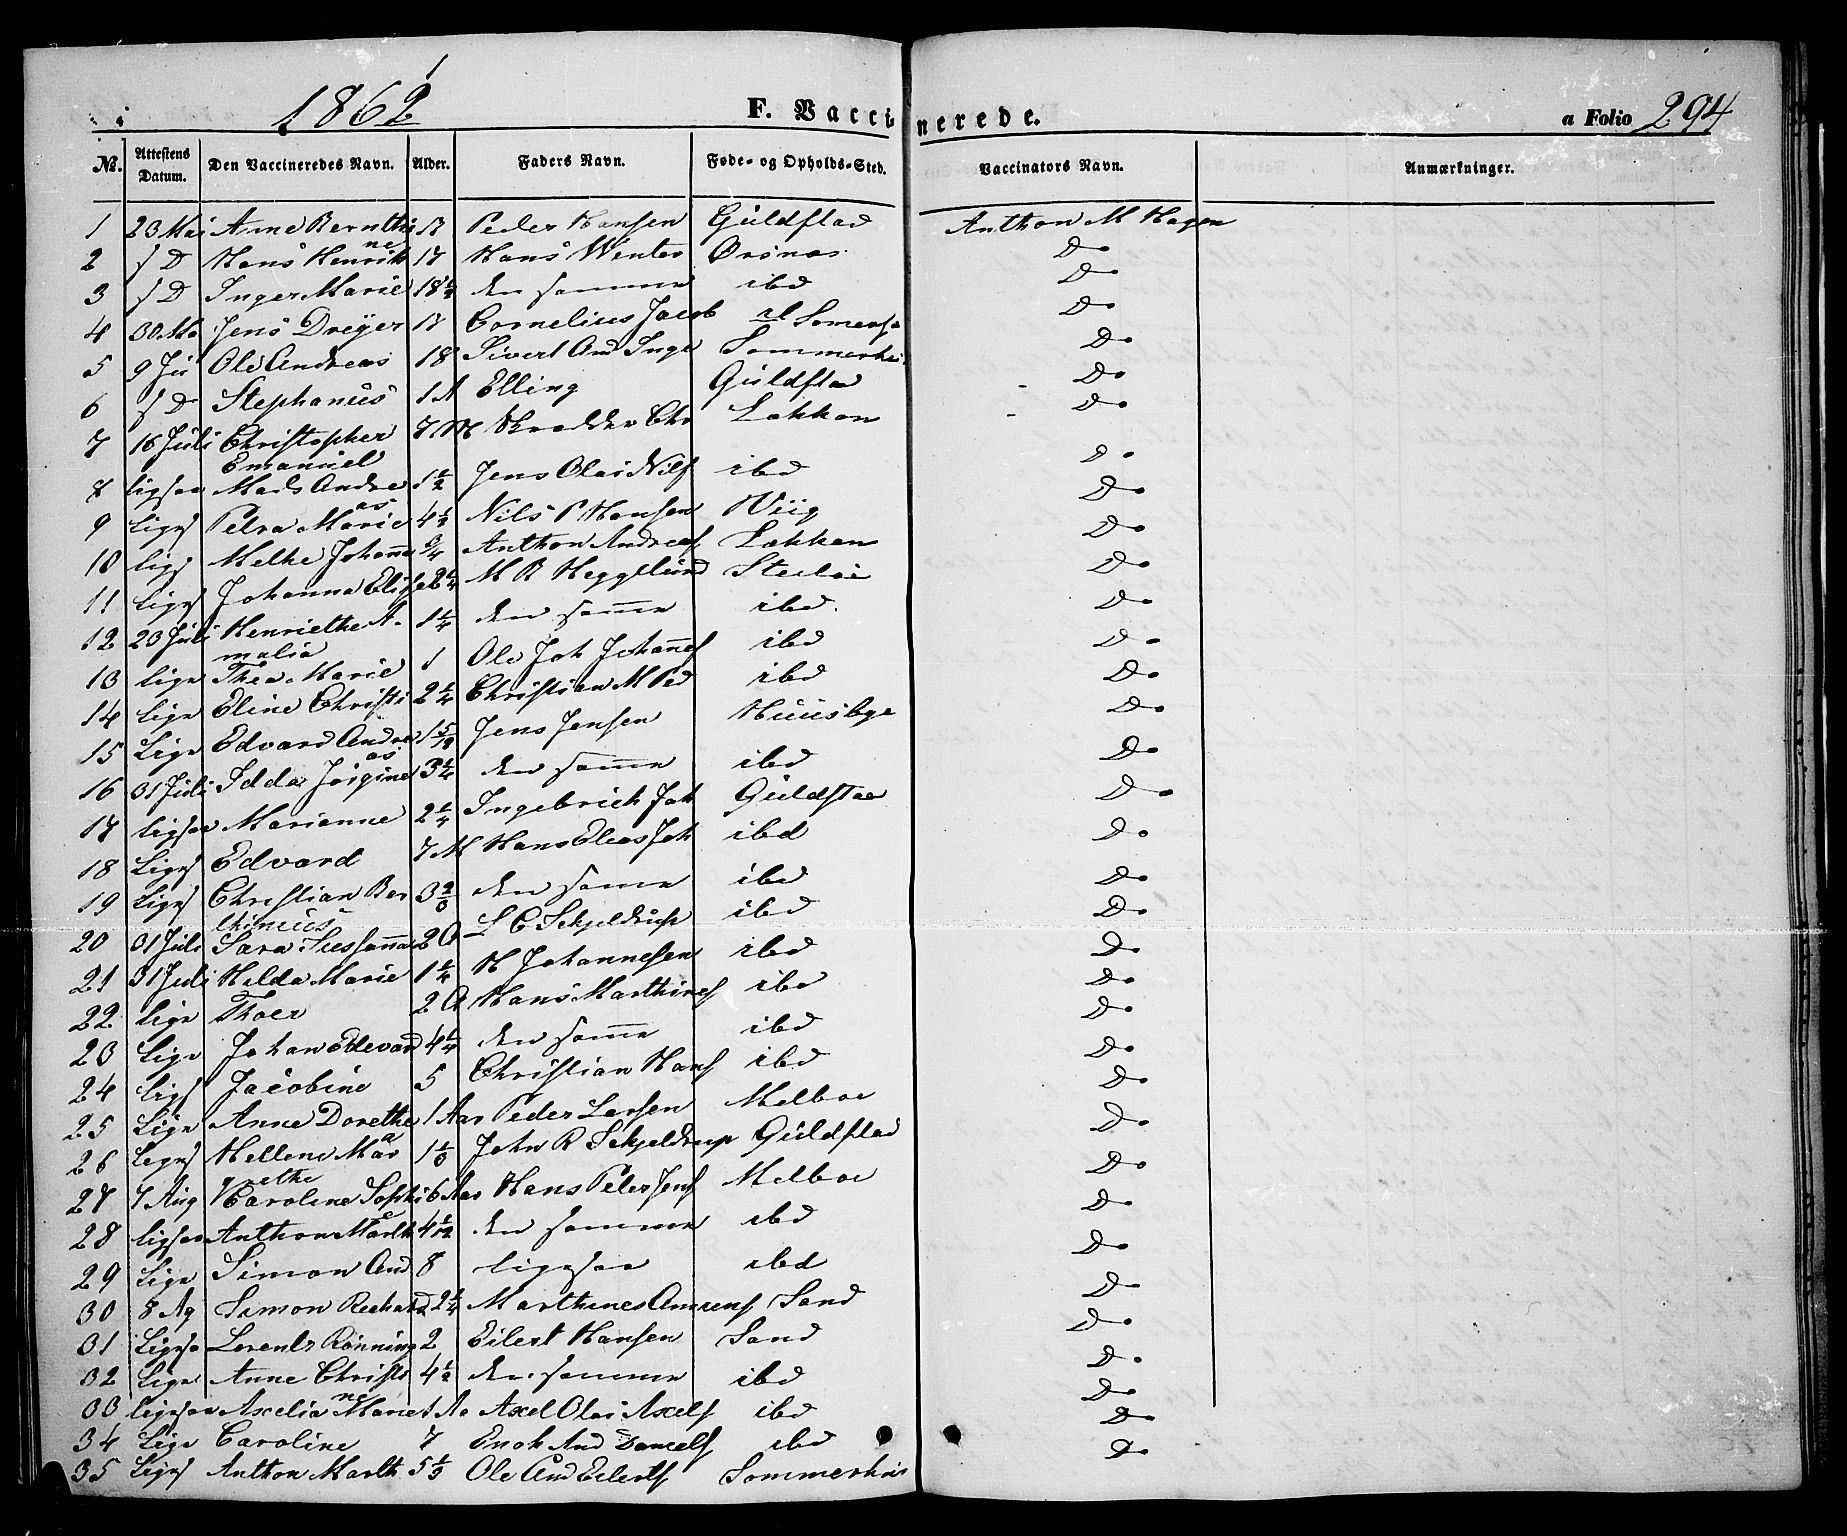 1862
F. Vaccinerede.
a Folio 294
№. Attestens Datum. Den Vaccineredes Navn. Alder. Faders Navn. Føde- og Opholds-Sted. Vaccinators Navn. Anmærkninger.
1 23 Mai Anne Bernthi Peder Hansen Guldstad Anthon M Hagen
2 s D Hans Henrik 17 Hans Winter Ørsnes Do
ne
3 s D Inger Marie 18½ den samme ibd Do
4 30 Ma Jens Dreyer Cornelius Jacob Do
5 9 Ju Ole Andreas 18 Sivert And Inge Sommerhus Do
6 s D Stephanus 1 A Elling Guldsta Do
7 16 Juli Christopher 7 M Skrædder Chr Løkken Do
Emanuel
8 ligsaa Mads Andre 1½ Jens Olai Nils ibd Do
as
9 Ligs Petra Marie 4½ Nils P Hansen Wiig Do
10 lig Melke Johanna ¾ Anthon Andreas Løkken Do
11 ligs Johanna Elise 2¼ M B Hegglund Steiløe Do
12 23 Juli Henriethe A- 1¼ den samme ibd. Do
malia
13 lige Thea Marie 1 Ole Joh Johannes ibd Do
14 lige Eline Christi 2¼ Christian M Ped ibd Do
15 Lige Edvard Andre 1 5/12 Jens Jensen Huusbye Do
as
16 31 Juli Idda Jørgine 3¼ den samme ibd Do
17 ligsaa Marianne 2¼ Ingebrigt Joh Guldstaa Do
18 Ligs Edvard 7 M Hans Eleas Joh ibd Do
19 Ligs Christian Ber 3⅔ den samme ibd Do
thinius
20 31 Juli Sara Susanna 2 A L C Schjeldrup ibd Do
21 31 Juli Hilda Marie 1¼ H Johannesen ibd Do
22 Lige Thoer 2 A Hans Marthines ibd Do
23 Lige Johan Edevard 4¼ den samme ibd Do
24 Ligs Jacobine 5 Christian Hans ibd Do
25 Lige Anne Dorethe 1 Aar Peder Larsen Melboe Do
26 Ligs Hellene Mar 1⅓ John R Schjeldrup Guldstad Do
grethe
27 7 Aug Caroline Sophi 6 Aar Hans Peter Jens Melboe Do
e
28 ligsaa Anthon Marth 4 1/12 den samme ibd Do
29 Lige Simon And 8 ligesaa ibd Do
30 8 Ag Simon Reehard 2¼ Marthines Amrens Sand Do
31 Ligsa Lorents Rønning 2 Eilert Hansen Sand Do
32 Lige Anne Christi 4½ den samme ibd Do
ne
33 ligesaa Axelia Marie 1 Aa Axel Olai Axels ibd Do
34 Lige Caroline 7 Enok And Daniels ibd Do
35 Ligs Anthon Marth 5⅓ Ole And Eilerts Sommerhus Do